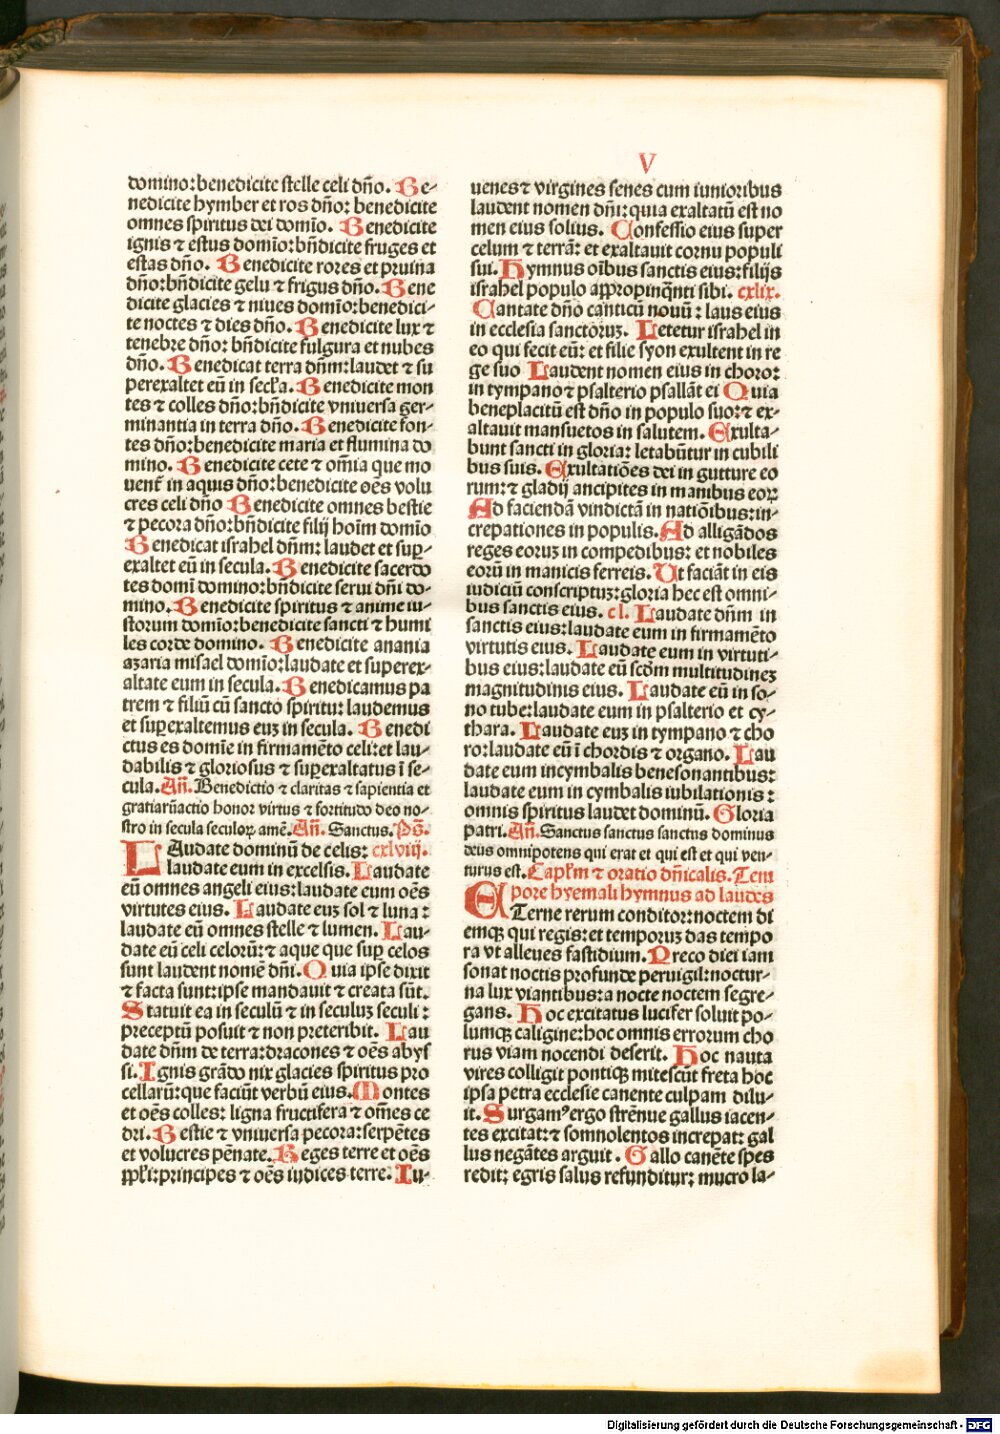 V
domino: benedicite stelle celi dño. Be-
nedicite hymber et ros dño: benedicite
omnes spiritus dei domĩo. Benedicite
ignis ⁊ estus domĩo: bñdicite fruges et
estas dño. Benedicite rores et pruina
dño: bñdicite gelu ⁊ frigus dño. Bene
dicite glacies ⁊ niues domĩo: benedici-
te noctes ⁊ dies dño. Benedicite lux ⁊
tenebre dño: bñdicite fulgura et nubes
dño. Benedicat terra dñm: laudet ⁊ su
perexaltet eũ in secĩa. Benedicite mon
tes ⁊ colles dño: bñdicite vniuersa ger-
minantia in terra dño. Benedicite fon-
tes dño: benedicite maria et flumina do
mino. Benedicite cete ⁊ om̃ia que mo
uent̃ in aquis dño: benedicite oẽs volu
cres celi dño Benedicite omnes bestie
⁊ pecora dño: bñdicite filij hoĩm domĩo
Benedicat israhel dñm: laudet et suꝑ-
exaltet eũ in secula. Benedicite sacerdo
tes domĩ domino: bñdicite serui dñi do-
mino. Benedicite spiritus ⁊ anime iu-
storum domĩo: benedicite sancti ⁊ humi
les corde domino. Benedicite anania
azaria misael domĩo: laudate et superex-
altate eum in secula. Benedicamus pa
trem ⁊ filiũ cũ sancto spiritu: laudemus
et suꝑexaltemus euꝫ in secula. Benedi
ctus es domĩe in firmamẽto celi: et lau-
dabilis ⁊ gloriosus ⁊ suꝑexaltatus ĩ se-
cula. Añ. Benedictio ⁊ claritas ⁊ sapientia et
gratiarũactio honor virtus ⁊ fortitudo deo no-
stro in secula seculoꝝ amẽ. Añ. Sanctus. Pš.
LAudate dominũ de celis: cxlviij.
laudate eum in excelsis. Laudate
eũ omnes angeli eius: laudate eum oẽs
virtutes eius. Laudate euꝫ sol ⁊ luna:
laudate eũ omnes stelle ⁊ lumen. Lau-
date eũ celi celorũ: ⁊ aque que suꝑ celos
sunt laudent nomẽ dñi. Quia ipse dixit
⁊ facta sunt: ipse mandauit ⁊ creata sũt.
Statuit ea in seculũ ⁊ in seculuꝫ seculi:
preceptũ posuit ⁊ non preteribit. Lau
date dñm de terra: dracones ⁊ oẽs abys
si. Ignis grãdo nix glacies spiritus pro
cellarũ: que faciũt verbũ eius. Montes
et oẽs colles: ligna fructifera ⁊ om̃es ce
dri. Bestie ⁊ vniuersa pecora: serpẽtes
et volucres pẽnate. Reges terre et oẽs
ppĺi: principes ⁊ oẽs iudices terre. Iu-
uenes ⁊ virgines senes cum iunioribus
laudent nomen dñi: quia exaltatũ est no
men eius solius. Confessio eius super
celum ⁊ terrã: et exaltauit cornu populi
sui. Hymnus oĩbus sanctis eius: filijs
israhel populo appropinq̃nti sibi. cxlix.
Cantate dño canticũ nouũ: laus eius
in ecclesia sanctoruꝫ. Letetur israhel in
eo qui fecit eũ: et filie syon exultent in re
ge suo Laudent nomen eius in choro:
in tympano ⁊ psalterio psallãt ei Quia
beneplacitũ est dño in populo suo: ⁊ ex-
altauit mansuetos in salutem. Exulta-
bunt sancti in gloria: letabũtur in cubili
bus suis. Exultatiões dei in gutture eo
rum: ⁊ gladij ancipites in manibus eoꝝ
Ad faciendã vindictã in natiõibus: in-
crepationes in populis. Ad alligãdos
reges eoruꝫ in compedibus: et nobiles
eorũ in manicis ferreis. Ut faciãt in eis
iudiciũ conscriptuꝫ: gloria hec est omni-
bus sanctis eius. cl. Laudate dñm in
sanctis eius: laudate eum in firmamẽto
virtutis eius. Laudate eum in virtuti-
bus eius: laudate eũ scđm multitudineꝫ
magnitudinis eius. Laudate eũ in so-
no tube: laudate eum in psalterio et cy-
thara. Laudate euꝫ in tympano ⁊ cho
ro: laudate eũ ĩ chordis ⁊ organo. Lau
date eum incymbalis benesonantibus:
laudate eum in cymbalis iubilationis:
omnis spiritus laudet dominũ. Gloria
patri. Añ. Sanctus sanctus sanctus dominus
deus omnipotens qui erat et qui est et qui ven-
turus est. Capĺm ⁊ oratio dñicalis. Tem
pore hyemali hymnus ad laudes
ETerne rerum conditor: noctem di
emqꝫ qui regis: et temporuꝫ das tempo
ra vt alleues fastidium. Preco diei iam
sonat noctis profunde peruigil: noctur-
na lux viantibus: a nocte noctem segre-
gans. Hoc excitatus lucifer soluit po-
lumqꝫ caligine: hoc omnis errorum cho
rus viam nocendi deserit. Hoc nauta
vires colligit pontiqꝫ mitescũt freta hoc
ipsa petra ecclesie canente culpam dilu-
it. Surgamꝰ ergo strẽnue gallus iacen-
tes excitat: ⁊ somnolentos increpat: gal
lus negãtes arguit. Gallo canẽte spes
redit: egris salus refunditur: mucro la-
Digitalisierung gefördert durch die Deutsche Forschungsgemeinschaft - DFG